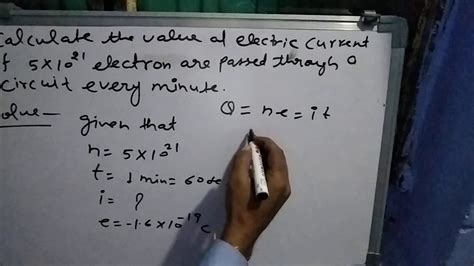 calculate the value of electric current
if 5×10²¹ electron are passed through a
circuit every minute.
Solve—
given that
Q = ne = it
n = 5×10²¹
t = 1 min = 60 sec
i = ?
e = -1.6×10⁻¹⁹ C